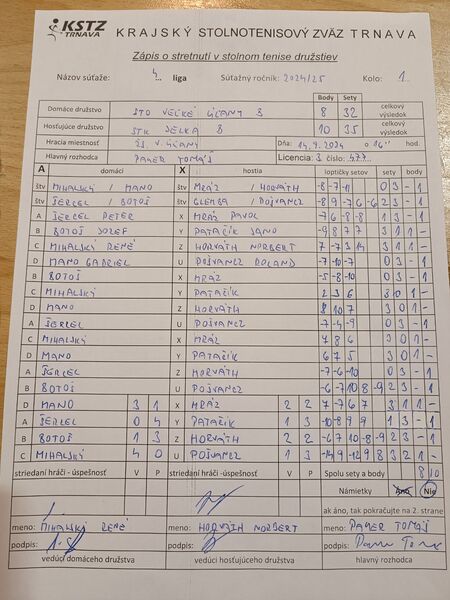 KSTZ TRNAVA KRAJSKÝ STOLNOTENISOVÝ ZVÄZ TRNAVA
Zápis o stretnutí v stolnom tenise družstiev
Názov súťaže: 4. liga Súťažný ročník: 2024/25 Kolo: 1.
Body Sety
Domáce družstvo STO VEĽKÉ ÚĽANY B 8 32 celkový výsledok
Hosťujúce družstvo STK SELKA B 10 35 celkový výsledok
Hracia miestnosť ZŠ. V. ÚĽANY Dňa: 14.9.2024 o 16 hod.
Hlavný rozhodca PAMER TOMÁŠ Licencia 3 číslo: 477
A domáci X hostia loptičky setov sety body
štv MIHALSKÝ / MANO štv MRÁZ / HORVÁTH -8 -7 -11 0 3 - 1
štv ŠERCEL / BOTOŠ štv GLEMBA / POJVANCZ -8 9 -7 -6 -6 2 3 - 1
A ŠERCEL PETER X MRÁZ PAVOL -7 6 -8 -8 1 3 - 1
B BOTOŠ JOZEF Y PATAČIK JANO -9 8 7 7 3 1 1 -
C MIHALSKÝ RENÉ Z HORVÁTH NORBERT 7 -7 3 14 3 1 1 -
D MANO GABRIEL U POJVANCZ ROLAND -7 -10 -7 0 3 - 1
B BOTOŠ X MRÁZ -5 -8 -10 0 3 - 1
C MIHALSKÝ Y PATAČIK 2 3 6 3 0 1 -
D MANO Z HORVÁTH 8 10 7 3 0 1 -
A ŠERCEL U POJVANCZ -7 -4 -9 0 3 - 1
C MIHALSKÝ X MRÁZ 7 8 6 3 0 1 -
D MANO Y PATAČIK 6 7 5 3 0 1 -
A ŠERCEL Z HORVÁTH -7 -6 -10 0 3 - 1
B BOTOŠ U POJVANCZ -6 -7 10 8 -9 2 3 - 1
D MANO 3 1 X MRÁZ 2 2 7 -7 6 7 3 1 1 -
A ŠERCEL 0 4 Y PATAČIK 1 3 -10 -8 9 9 1 3 - 1
B BOTOŠ 1 3 Z HORVÁTH 2 2 -6 7 10 -8 -9 2 3 - 1
C MIHALSKÝ 4 0 U POJVANCZ 1 3 -14 9 -12 9 8 3 2 1 -
striedaní hráči - úspešnosť V P striedaní hráči -úspešnosť V P Spolu sety a body 8 10
Námietky Áno Nie
ak áno, tak pokračujte na 2. strane
meno: MIHALSKÝ RENÉ meno: HORVÁTH NORBERT meno: PAMER TOMÁŠ
podpis: podpis: podpis:
vedúci domáceho družstva vedúci hosťujúceho družstva hlavný rozhodca